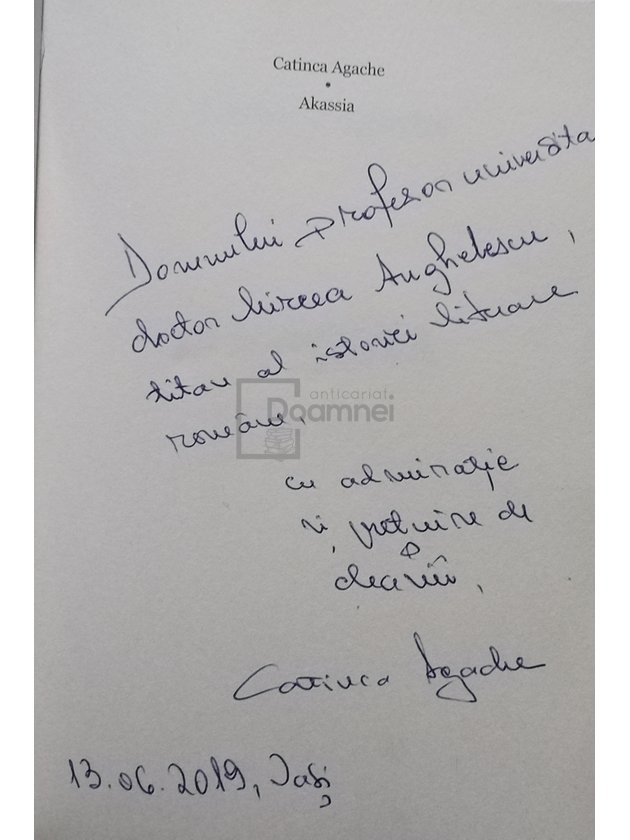 Catinca Agache
•
Akassia
Domnului profesor universita
doctor Mircea Anghelescu,
titan al istoriei literare
române,
cu admirație
și prețuire de
decenii,
Catinca Agache
13.06.2019, Iași
anticariat
Doamnei